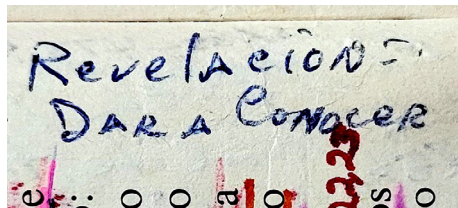 RevelAcioN=
DAR A CoNocer
22,23